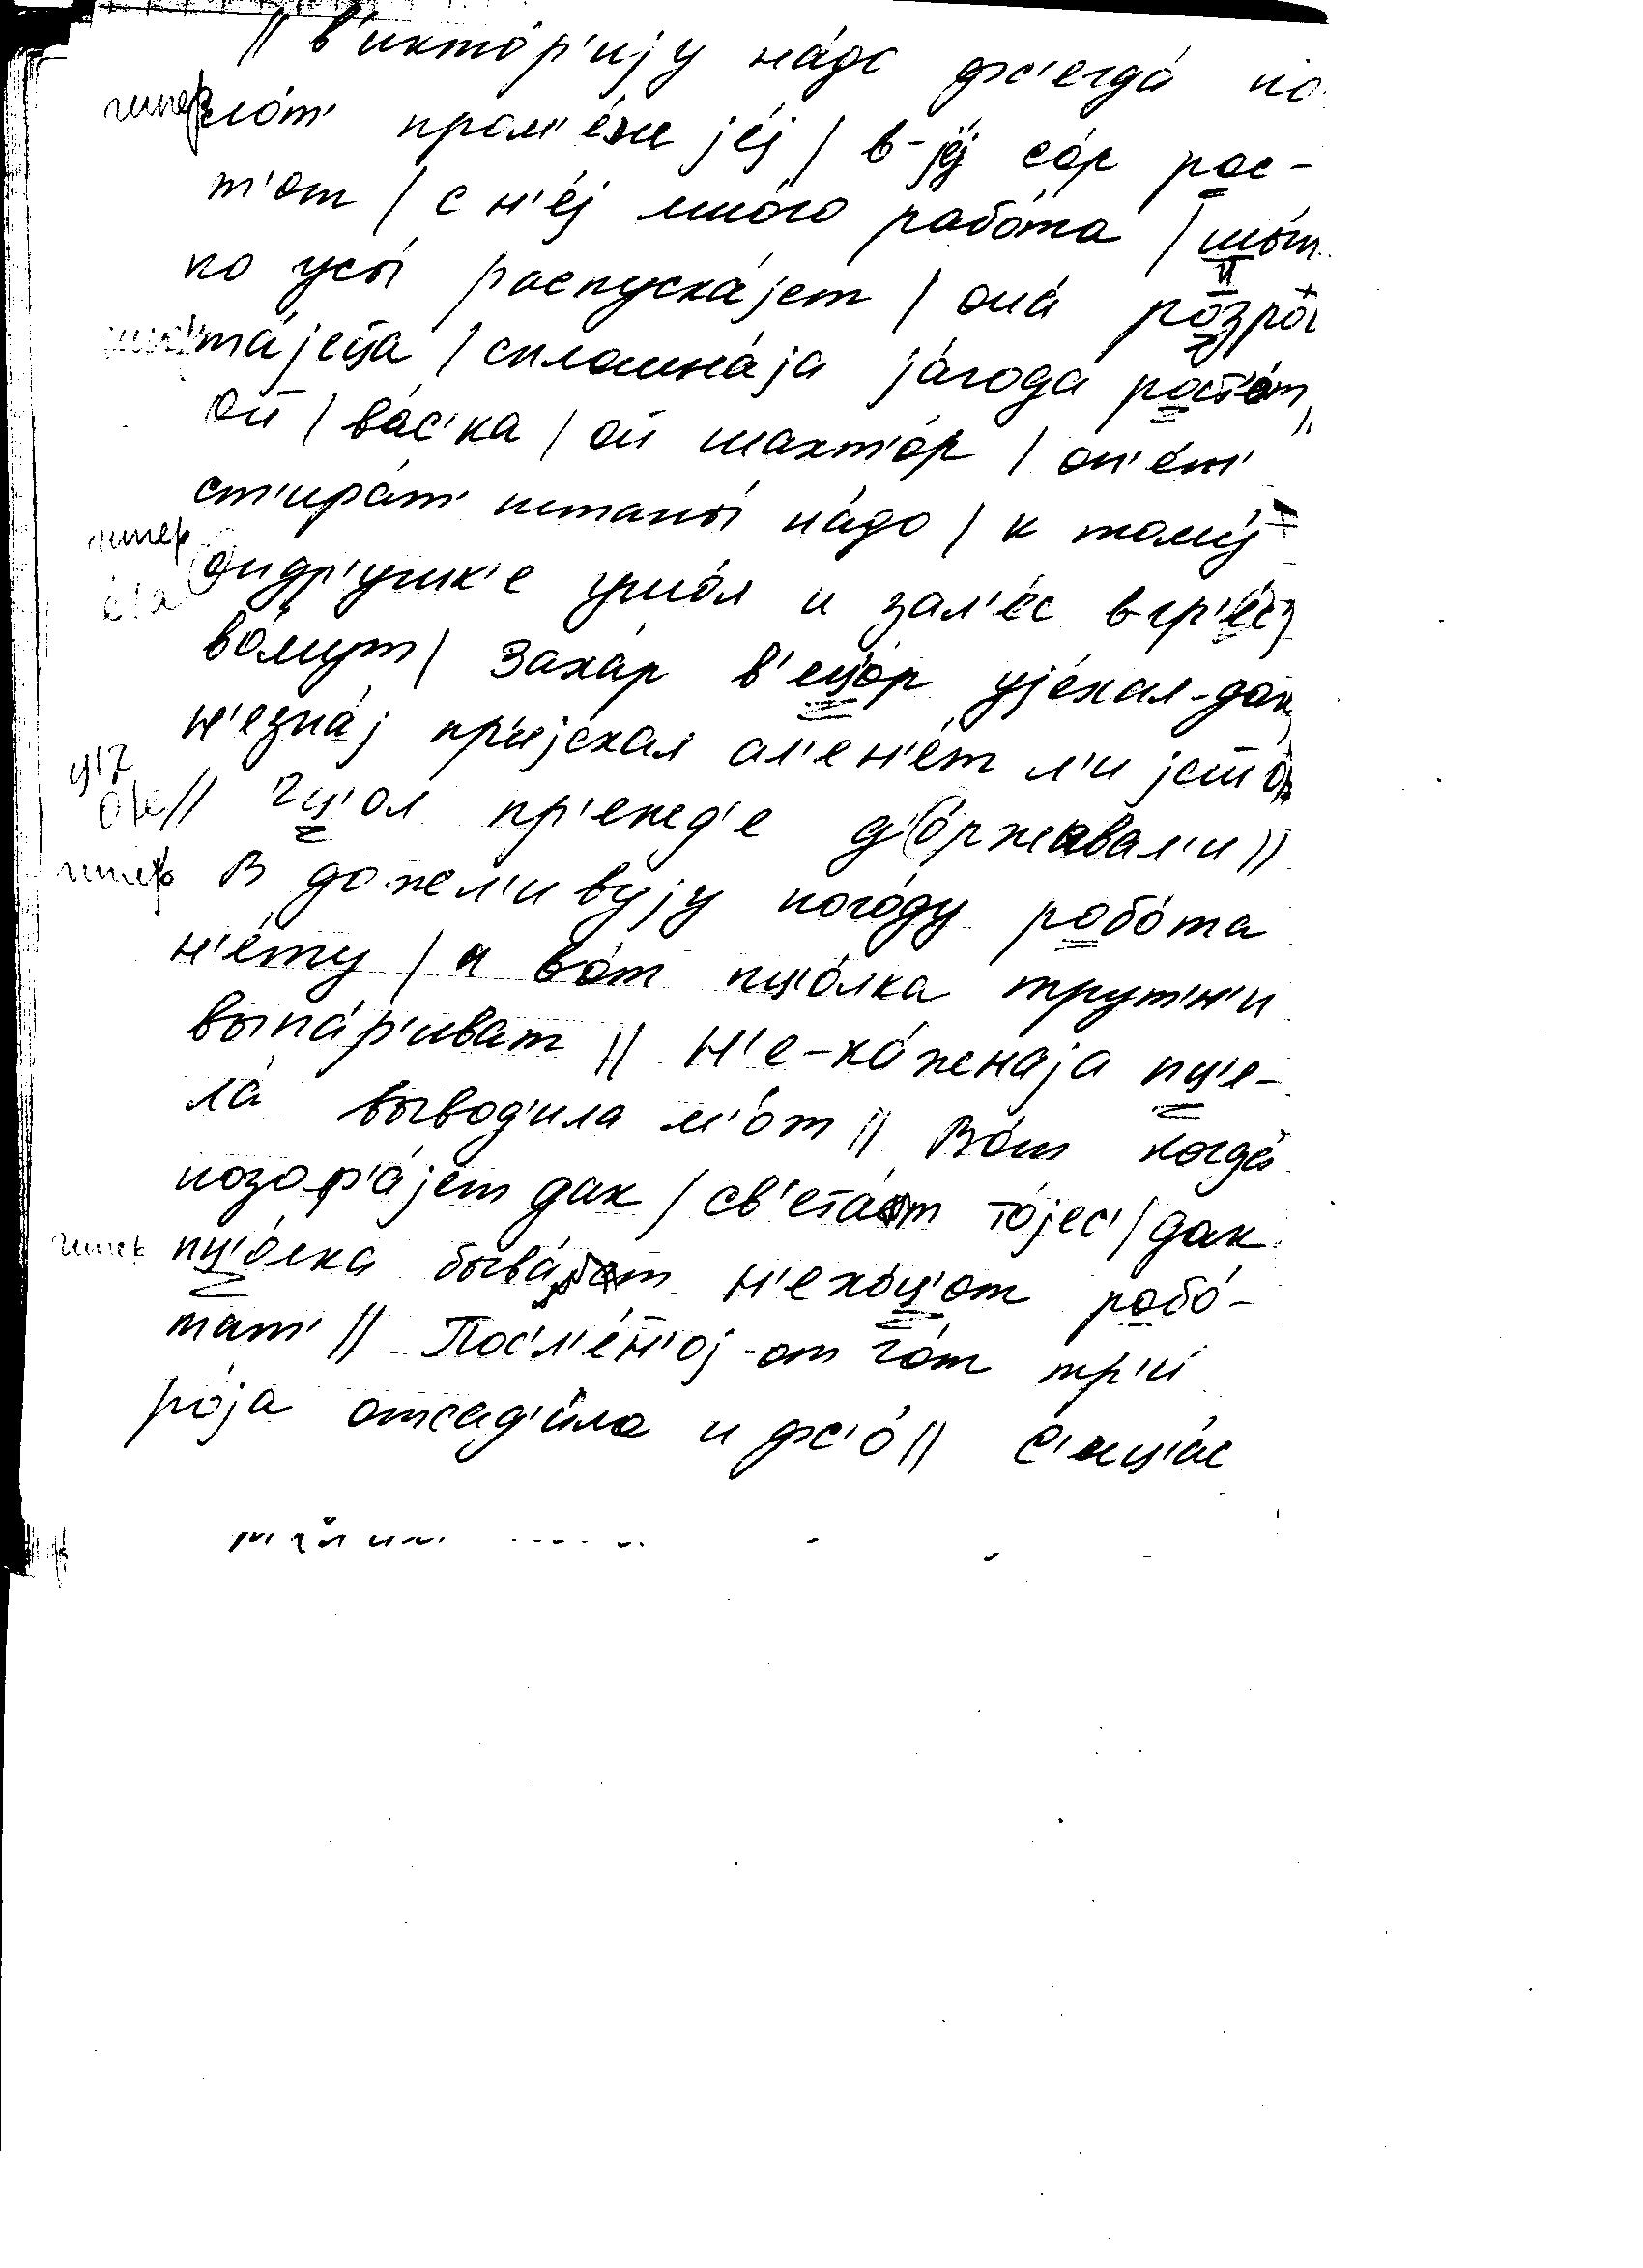 // в'икто́р'иjу на́до фс'егда́ по
гипер ло́т' пром'е́жи jе́j / в-jе́j со́р рос-
т'от / с н'е́j мно́го рабо́та / шы́т
ко усы́ роспуска́jет / она́ розро
та́jеца / сплошна́jа jа́года рост'о́т //
ой / ва́с'ка / ой шахт'о́р / оп'е́т'
ст'ира́т' штаны́ на́до / к тому́
гипер андр'ушк'е ушо́л и зал'е́с в-гр'е́с
е/а во́мут / Заха́р в'ец'о́р уjе́хал-дак
н'езна́j пр'иjе́хал ал'е н'е́т л'и jешо
ц/ч о/е // Пц'ол пр'ежд'е д'оржывал'и //
гипер В дожл'ивуjу пого́ду робо́та
н'е́ту / а во́т пц'о́лка трут'н'и
выпа́р'иват // Н'е-ка́женаjа пц'е-
ла́ вывод'ила м'о́т // Во́т когда́
позор'а́jет дак / св'ета́т то́jес' / дак
гипер пц'о́лка быва́т н'ехо́ц'от робо́-
тат' // Посл'е́н'оj-от го́т тр'и́
ро́jа отсад'и́ла и фс'о́ // С'иц'а́с